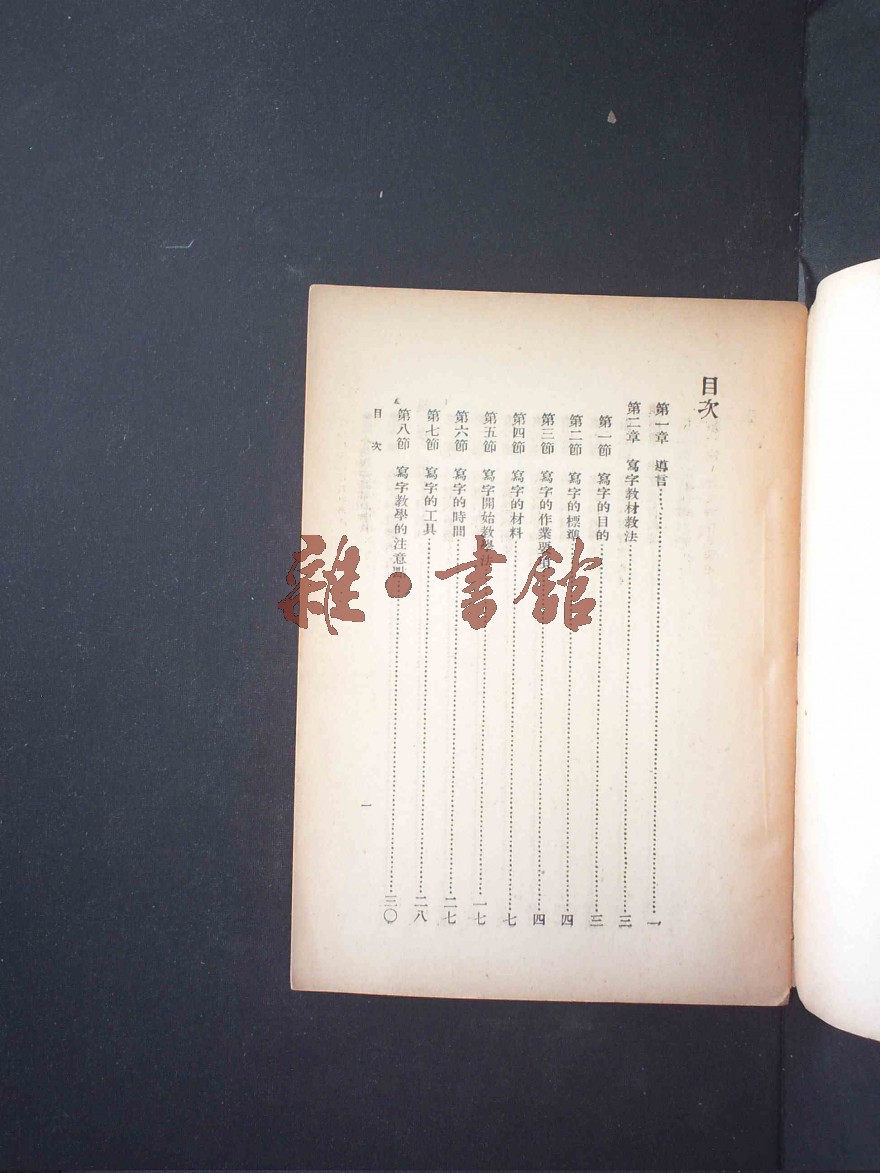 目次
第一章 導言……一
第二章 寫字教材教法……三
第一節 寫字的目的……三
第二節 寫字的標準……四
第三節 寫字的作業要項……四
第四節 寫字的材料……七
第五節 寫字開始教學法……一七
第六節 寫字的時間……二七
第七節 寫字的工具……二八
第八節 寫字教學的注意點……三〇
目次
一
雜·書館